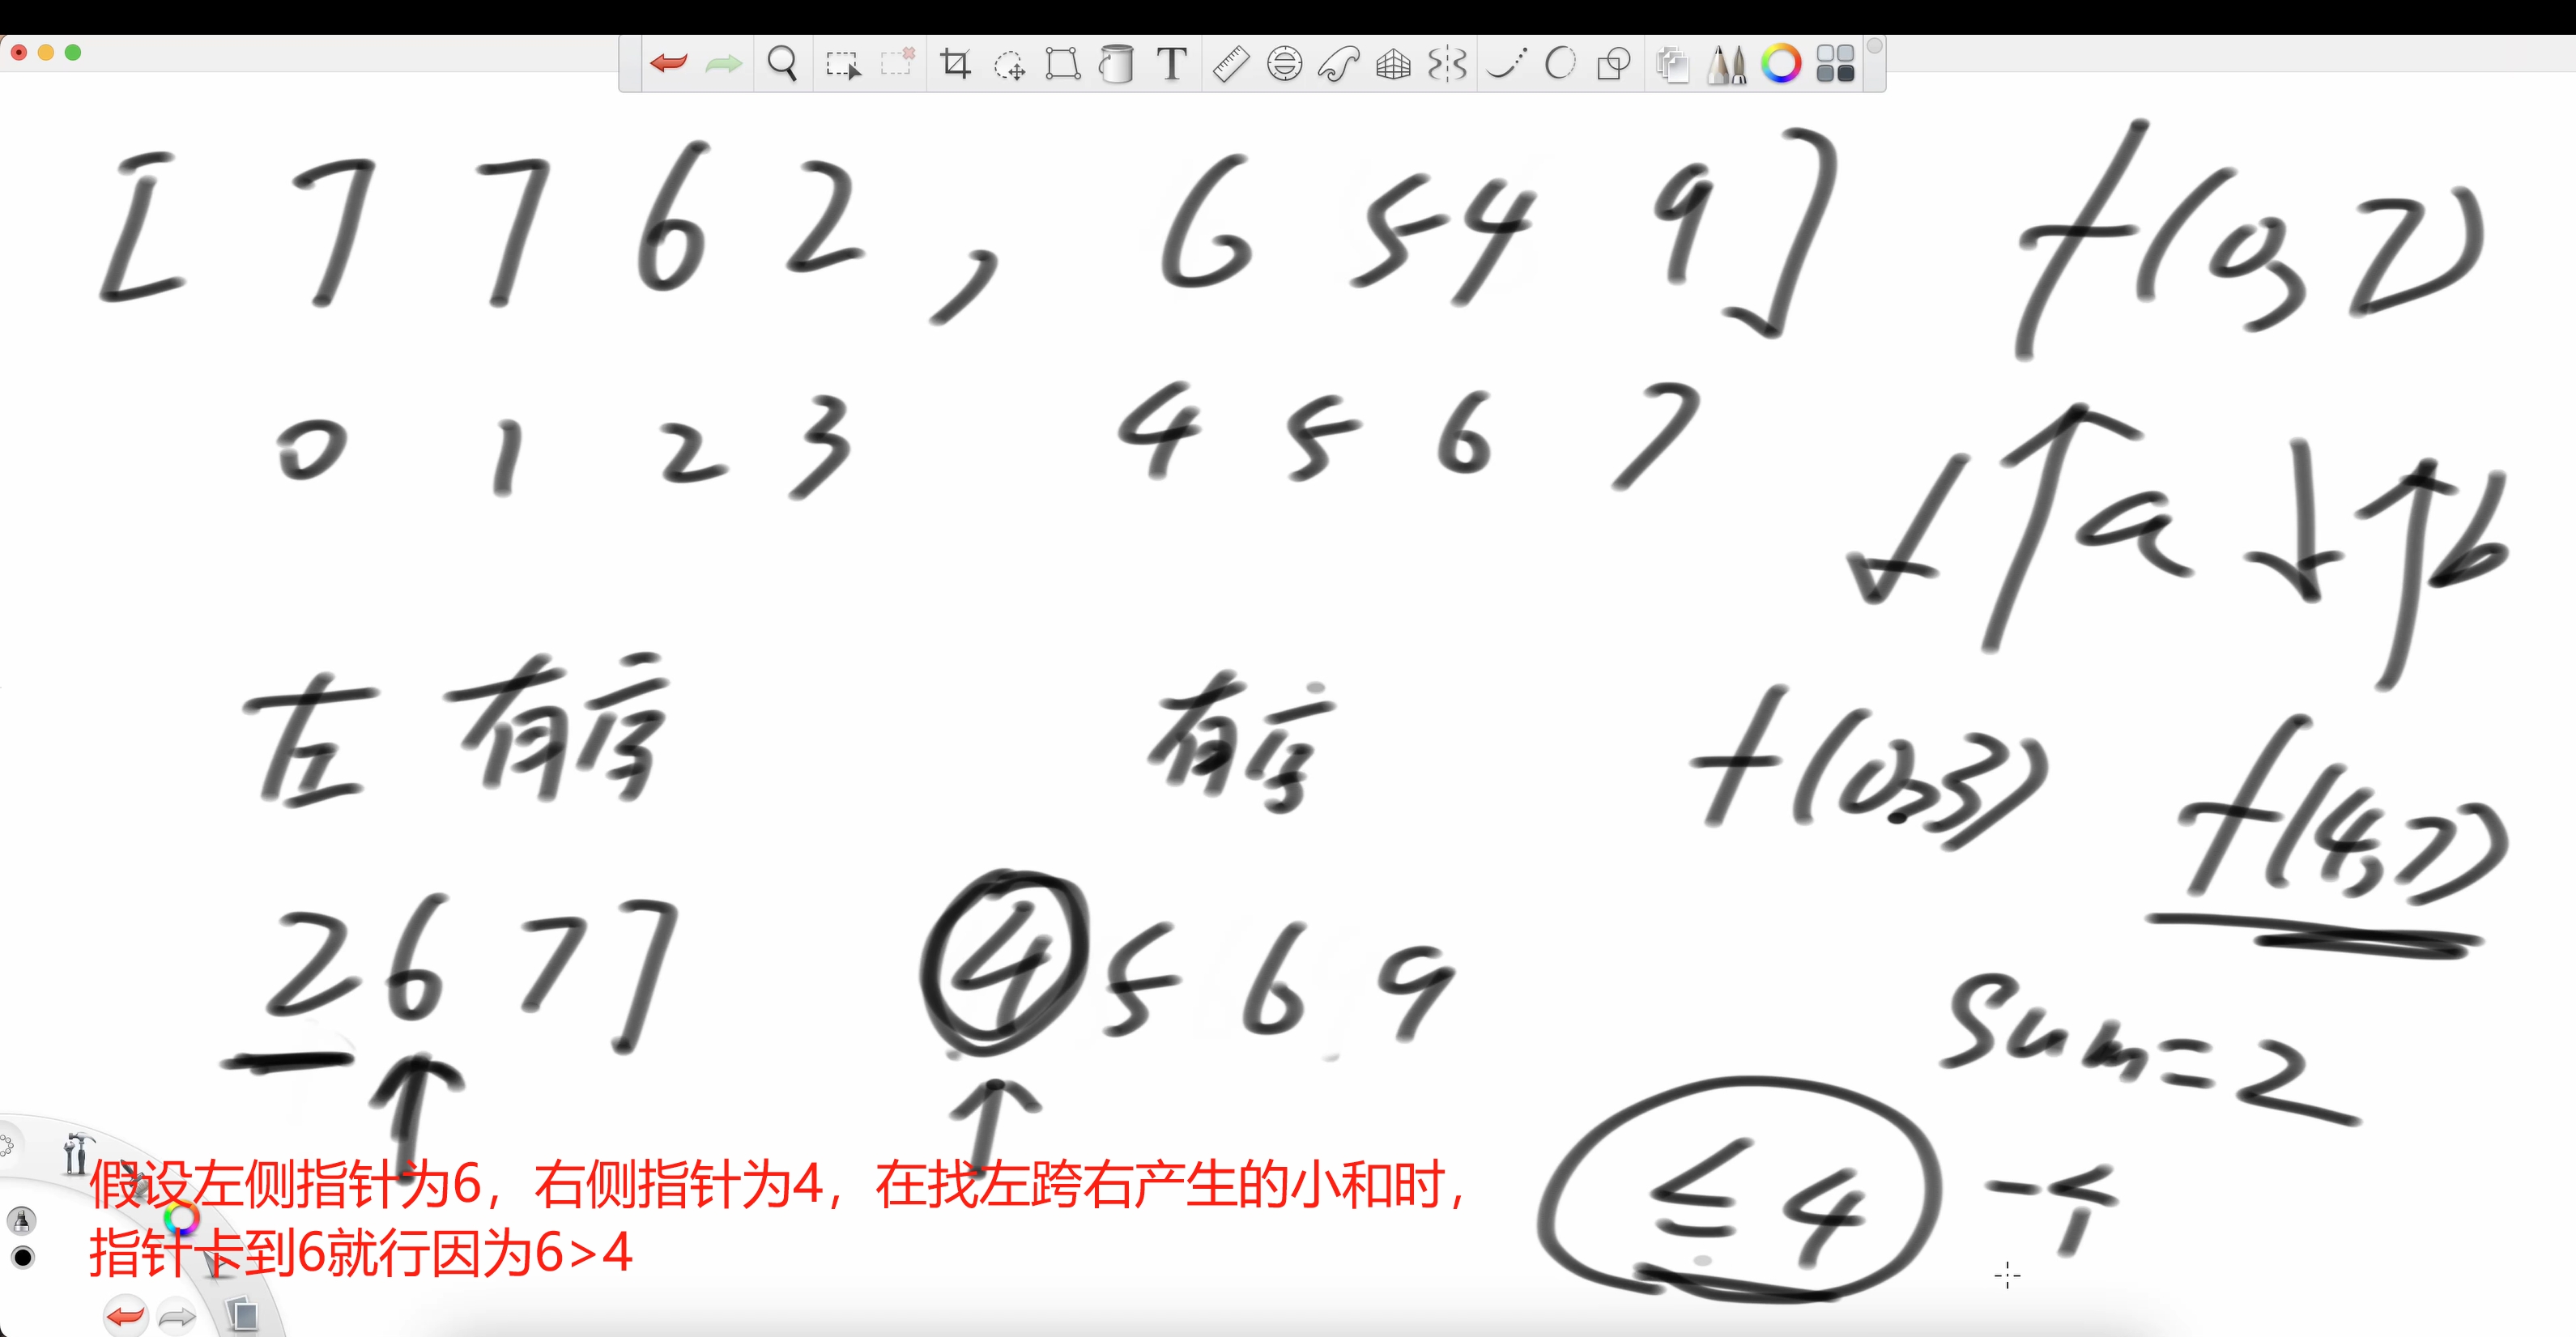 [ 7 7 6 2 , 6 5 4 9 ] f(0,7)
0 1 2 3 4 5 6 7
a b
左 有序 有序 f(0,3) f(4,7)
2 6 7 7 4 5 6 9
Sum=2
≤4
假设左侧指针为6，右侧指针为4，在找左跨右产生的小和时，
指针卡到6就行因为6>4